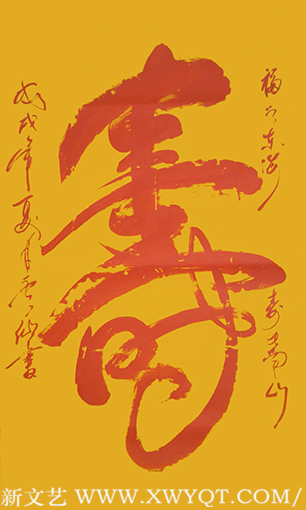 福如东海 寿比南山
寿
戊戌年夏月
新文艺 WWW.XWYQT.COM